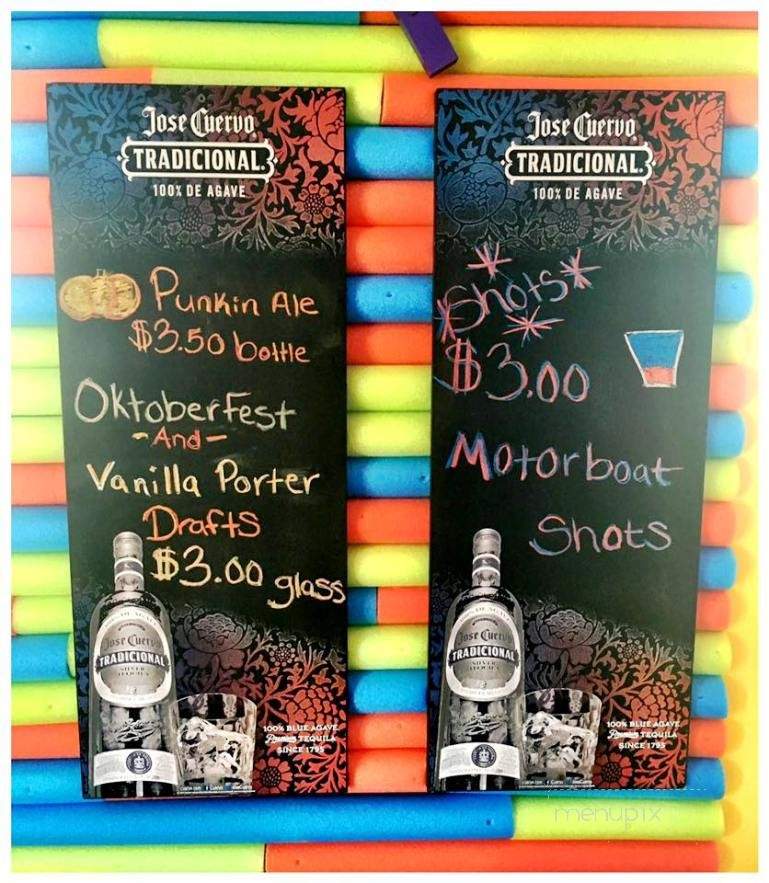 Jose Cuervo
TRADICIONAL
100% DE AGAVE
Punkin Ale
$3.50 bottle
Oktoberfest
-And-
Vanilla Porter
Drafts
$3.00 glass
Jose Cuervo
TRADICIONAL
SILVER
TEQUILA
100% BLUE AGAVE
Premium TEQUILA
SINCE 1795
Jose Cuervo
TRADICIONAL
100% DE AGAVE
Shots
$3.00
Motorboat
Shots
Jose Cuervo
TRADICIONAL
SILVER
TEQUILA
100% BLUE AGAVE
Premium TEQUILA
SINCE 1795
menupix